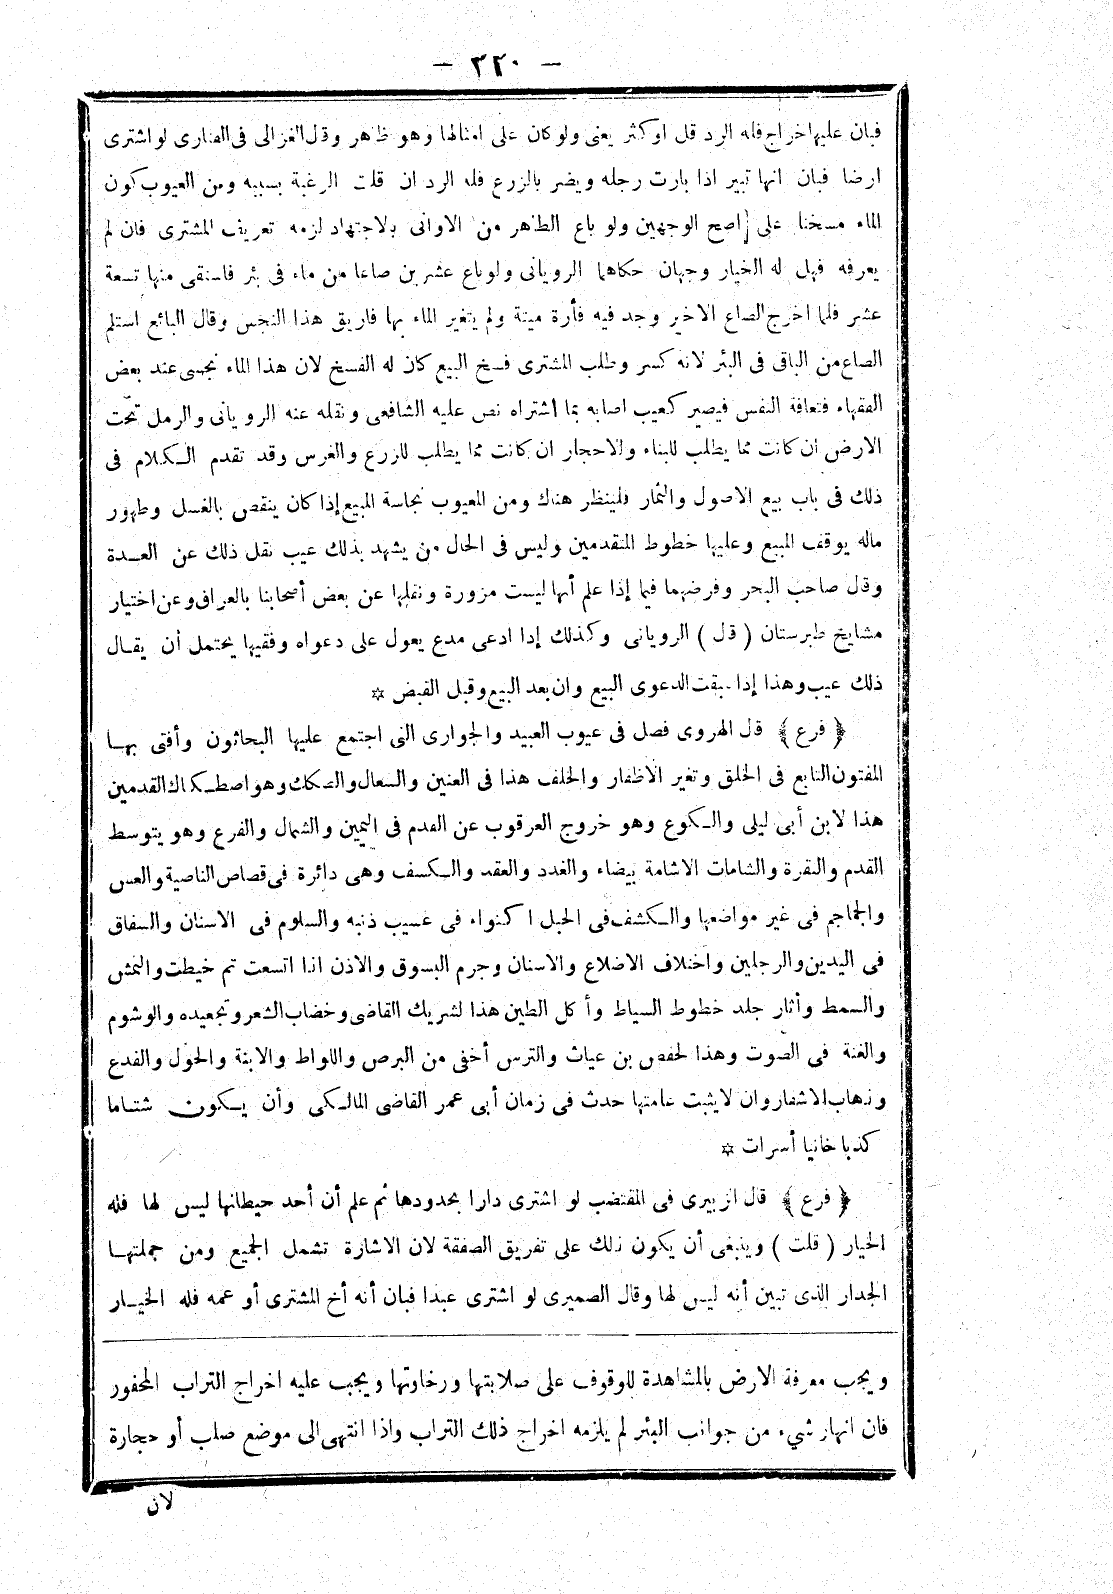 — ٣٢٠ —
فبان عليها خراج فله الرد قل او كثر يعنى ولو كان على امثالها وهو ظاهر وقال الغزالى فى الفتاوى لو اشترى
ارضا فبان انها تبير اذا بارت رجله ويضر بالزرع فله الرد ان قلت الرغبة بسببه ومن العيوب كون
الماء مسخنا على اصح الوجهين ولو باع الطاهر من الاوانى بالاجتهاد لزمه تعريف المشترى فان لم
يعرفه فهل له الخيار وجهان حكاهما الرويانى ولو باع عشرين صاعا من ماء فى بئر فاستقى منها تسعة
عشر فلما اخرج الصاع الاخير وجد فيه فأرة ميتة ولم يتغير الماء بها فاريق هذا النجس وقال البائع استلم
الصاع من الباقى فى البئر لانه كسر وطلب المشترى فسخ البيع كان له الفسخ لان هذا الماء نجس عند بعض
الفقهاء فتعافة النفس فيصير كعيب اصابه بما اشتراه نص عليه الشافعى ونقله عنه الرويانى والرمل تحت
الارض ان كانت مما يطلب للبناء والاحجار ان كانت مما يطلب للزرع والغرس وقد تقدم الكلام فى
ذلك فى باب بيع الاصول والثمار فلينظر هناك ومن العيوب نجاسة المبيع إذا كان ينقص بالغسل وظهور
ماله يوقف المبيع وعليها خطوط المتقدمين وليس فى الحال من يشهد بذلك عيب نقل ذلك عن العدة
وقال صاحب البحر وفرضهما فيما إذا علم أنها ليست مزورة ونقلها عن بعض أصحابنا بالعراق وعن اختيار
مشايخ طبرستان ( قال ) الرويانى وكذلك إذا ادعى مدع يعول على دعواه وفقيها يحتمل أن يقال
ذلك عيب وهذا إذا سبقت الدعوى البيع وان بعد البيع وقبل القبض *
﴿ فرع ﴾ قال الهروى فصل فى عيوب العبيد والجوارى التى اجتمع عليها البحاثون وأفتى بها
المفتون التابع فى الخلق وتغير الأظفار والخلف هذا فى العنين والسعال والصكاك وهو اصطكاك القدمين
هذا لابن أبى ليلى والكوع وهو خروج العرقوب عن القدم فى اليمين والشمال والفرع وهو يتوسط
القدم والنقرة والشامات الاشامة بيضاء والغدد والعقد والكسف وهى دائرة فى قصاص الناصية والعس
والجماجم فى غير مواضعها والكشف فى الحبل اكنواء فى عسيب ذنبه والسلوم فى الاسنان والسفاق
فى اليدين والرجلين واختلاف الاضلاع والاسنان وجرم البسوق والاذن اذا اتسعت ثم خيطت والنمش
والسمط وأثار جلد خطوط السياط وأكل الطين هذا لشريك القاضى وخضاب الشعر وتجعيده والوشوم
والغنة فى الصوت وهذا لحفص بن عياث والترس أخفى من البرص واللواط والابنة والحول والفدع
وذهاب الاشفار وان لا يثبت عامتها حدث فى زمان أبى عمر القاضى المالكى وأن يكون شتاما
كذبا خانيا أسرات *
﴿ فرع ﴾ قال الزبيرى فى المقتضب لو اشترى دارا بحدودها ثم علم أن أحد حيطانها ليس لها فله
الخيار ( قلت ) وينبغى أن يكون ذلك على تفريق الصفقة لان الاشارة تشمل الجميع ومن جملتها
الجدار الذى تبين أنه ليس لها وقال الصميرى لو اشترى عبدا فبان أنه أخ المشترى أو عمه فله الخيار
ويجب معرفة الارض بالمشاهدة للوقوف على صلابتها ورخاوتها ويجب عليه اخراج التراب المحفور
فان انهار شىء من جوانب البئر لم يلزمه اخراج ذلك التراب واذا انتهى الى موضع صلب أو حجارة
لان